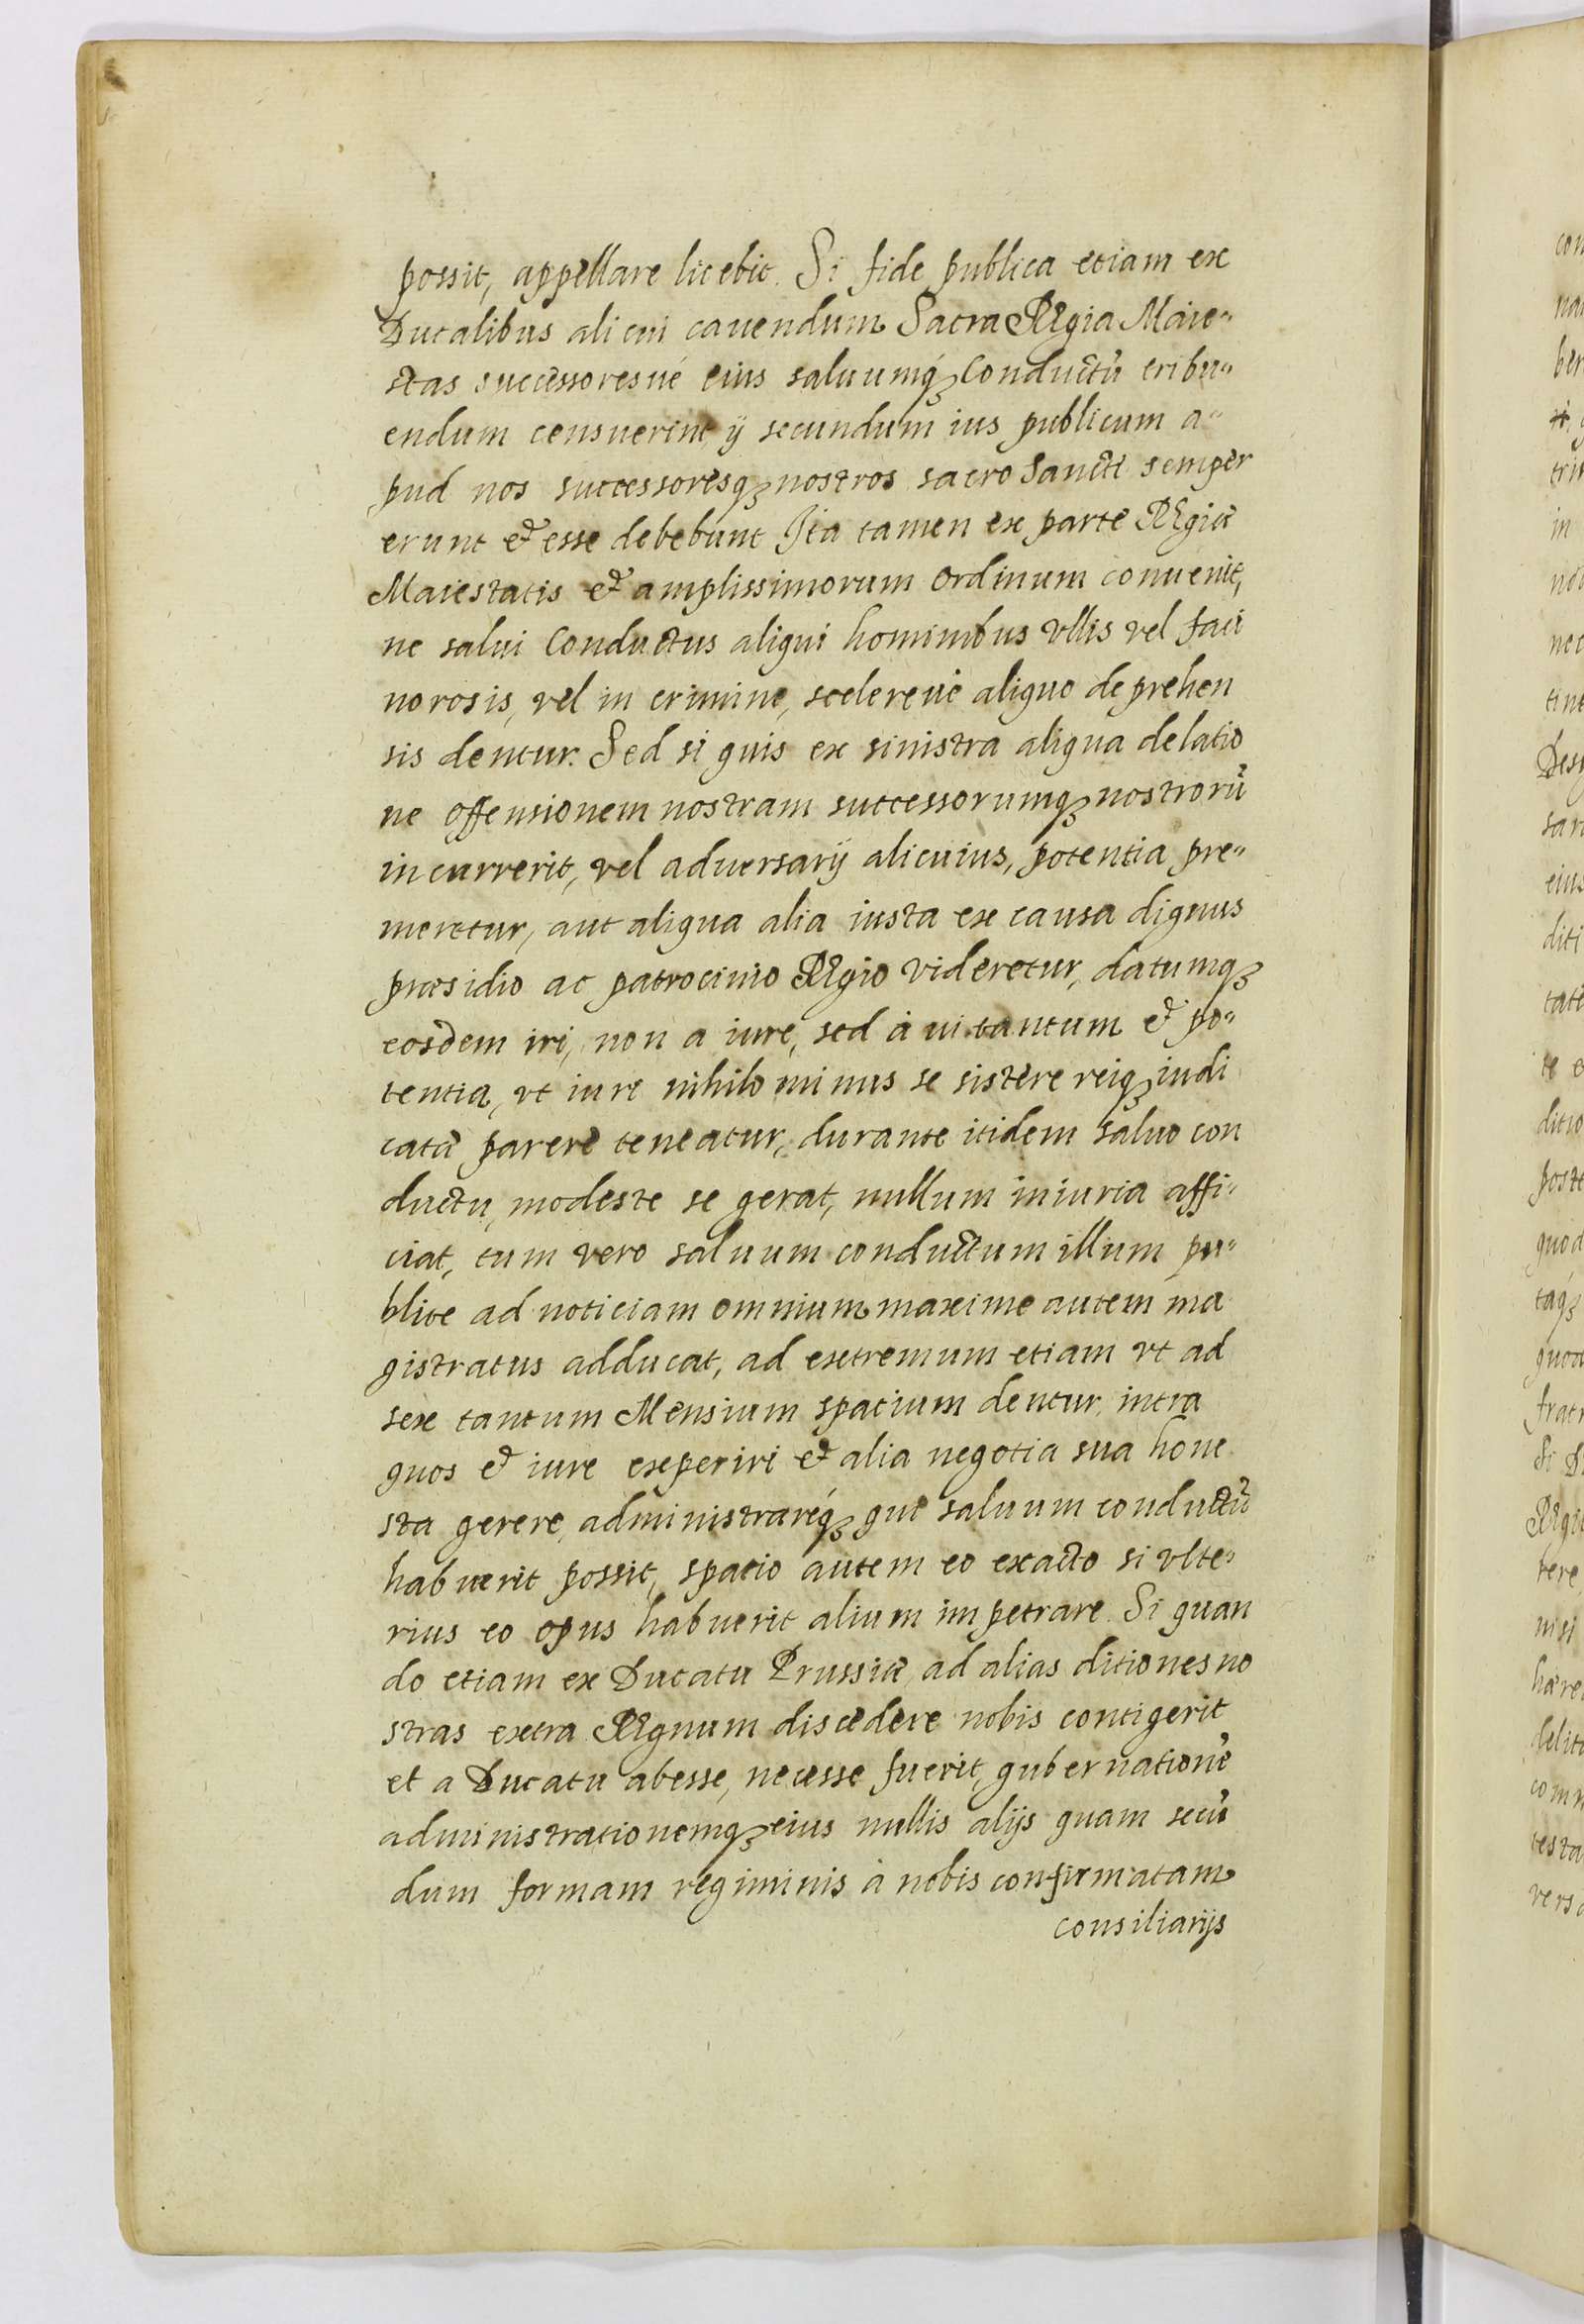 possit, appellare licebit. Si fide publica etiam ex
Ducalibus alicui cauendum Sacra Regia Maie„
stas successoresué eius saluumq́ꝫ Conductũ tribu„
endum censuerint, ij secundum ius publicum a„
pud nos successoresqꝫ nostros sacro Sancti semper
erunt & esse debebunt Ita tamen ex parte Regiæ
Maiestatis & amplissimorum Ordinum conuenit,
ne salui Conductus aliqui hominibus vllis vel faci
norosis, vel in crimine, scelereué aliquo deprehen
sis dentur. Sed si quis ex sinistra aliqua delatio
ne offensionem nostram successorumqꝫ nostrorũ
incurrerit, vel aduersarij alicuius, potentia pre„
meretur, aut aliqua alia iusta ex causa dignus
præsidio ac patrocinio Regio videretur, datumqꝫ
eosdem iri, non a iure, sed à ui tantum & po„
tentia, vt iure nihilo minus se sistere reiqꝫ iudi
catæ parere teneatur, durante itidem saluo con
ductu, modeste se gerat, nullum iniuria affi„
ciat, tum vero saluum conductum illum pu„
blice ad noticiam omnium maxime autem ma
gistratus adducat, ad extremum etiam vt ad
sex tantum Mensium spatium dentur, intra
quos & iure experiri & alia negotia sua hone
sta gerere, administraréqꝫ qui saluum conductũ
habuerit possit, spatio autem eo exacto si vlte„
rius eo opus habuerit alium impetrare. Si quan
do etiam ex Ducatu Prussiæ ad alias ditiones no
stras extra Regnum discedere nobis contigerit
et a Ducatu abesse, necesse fuerit, gubernationẽ
administrationemqꝫ eius nullis alijs quam secũ
dum formam regiminis à nobis confirmatam
consiliarijs